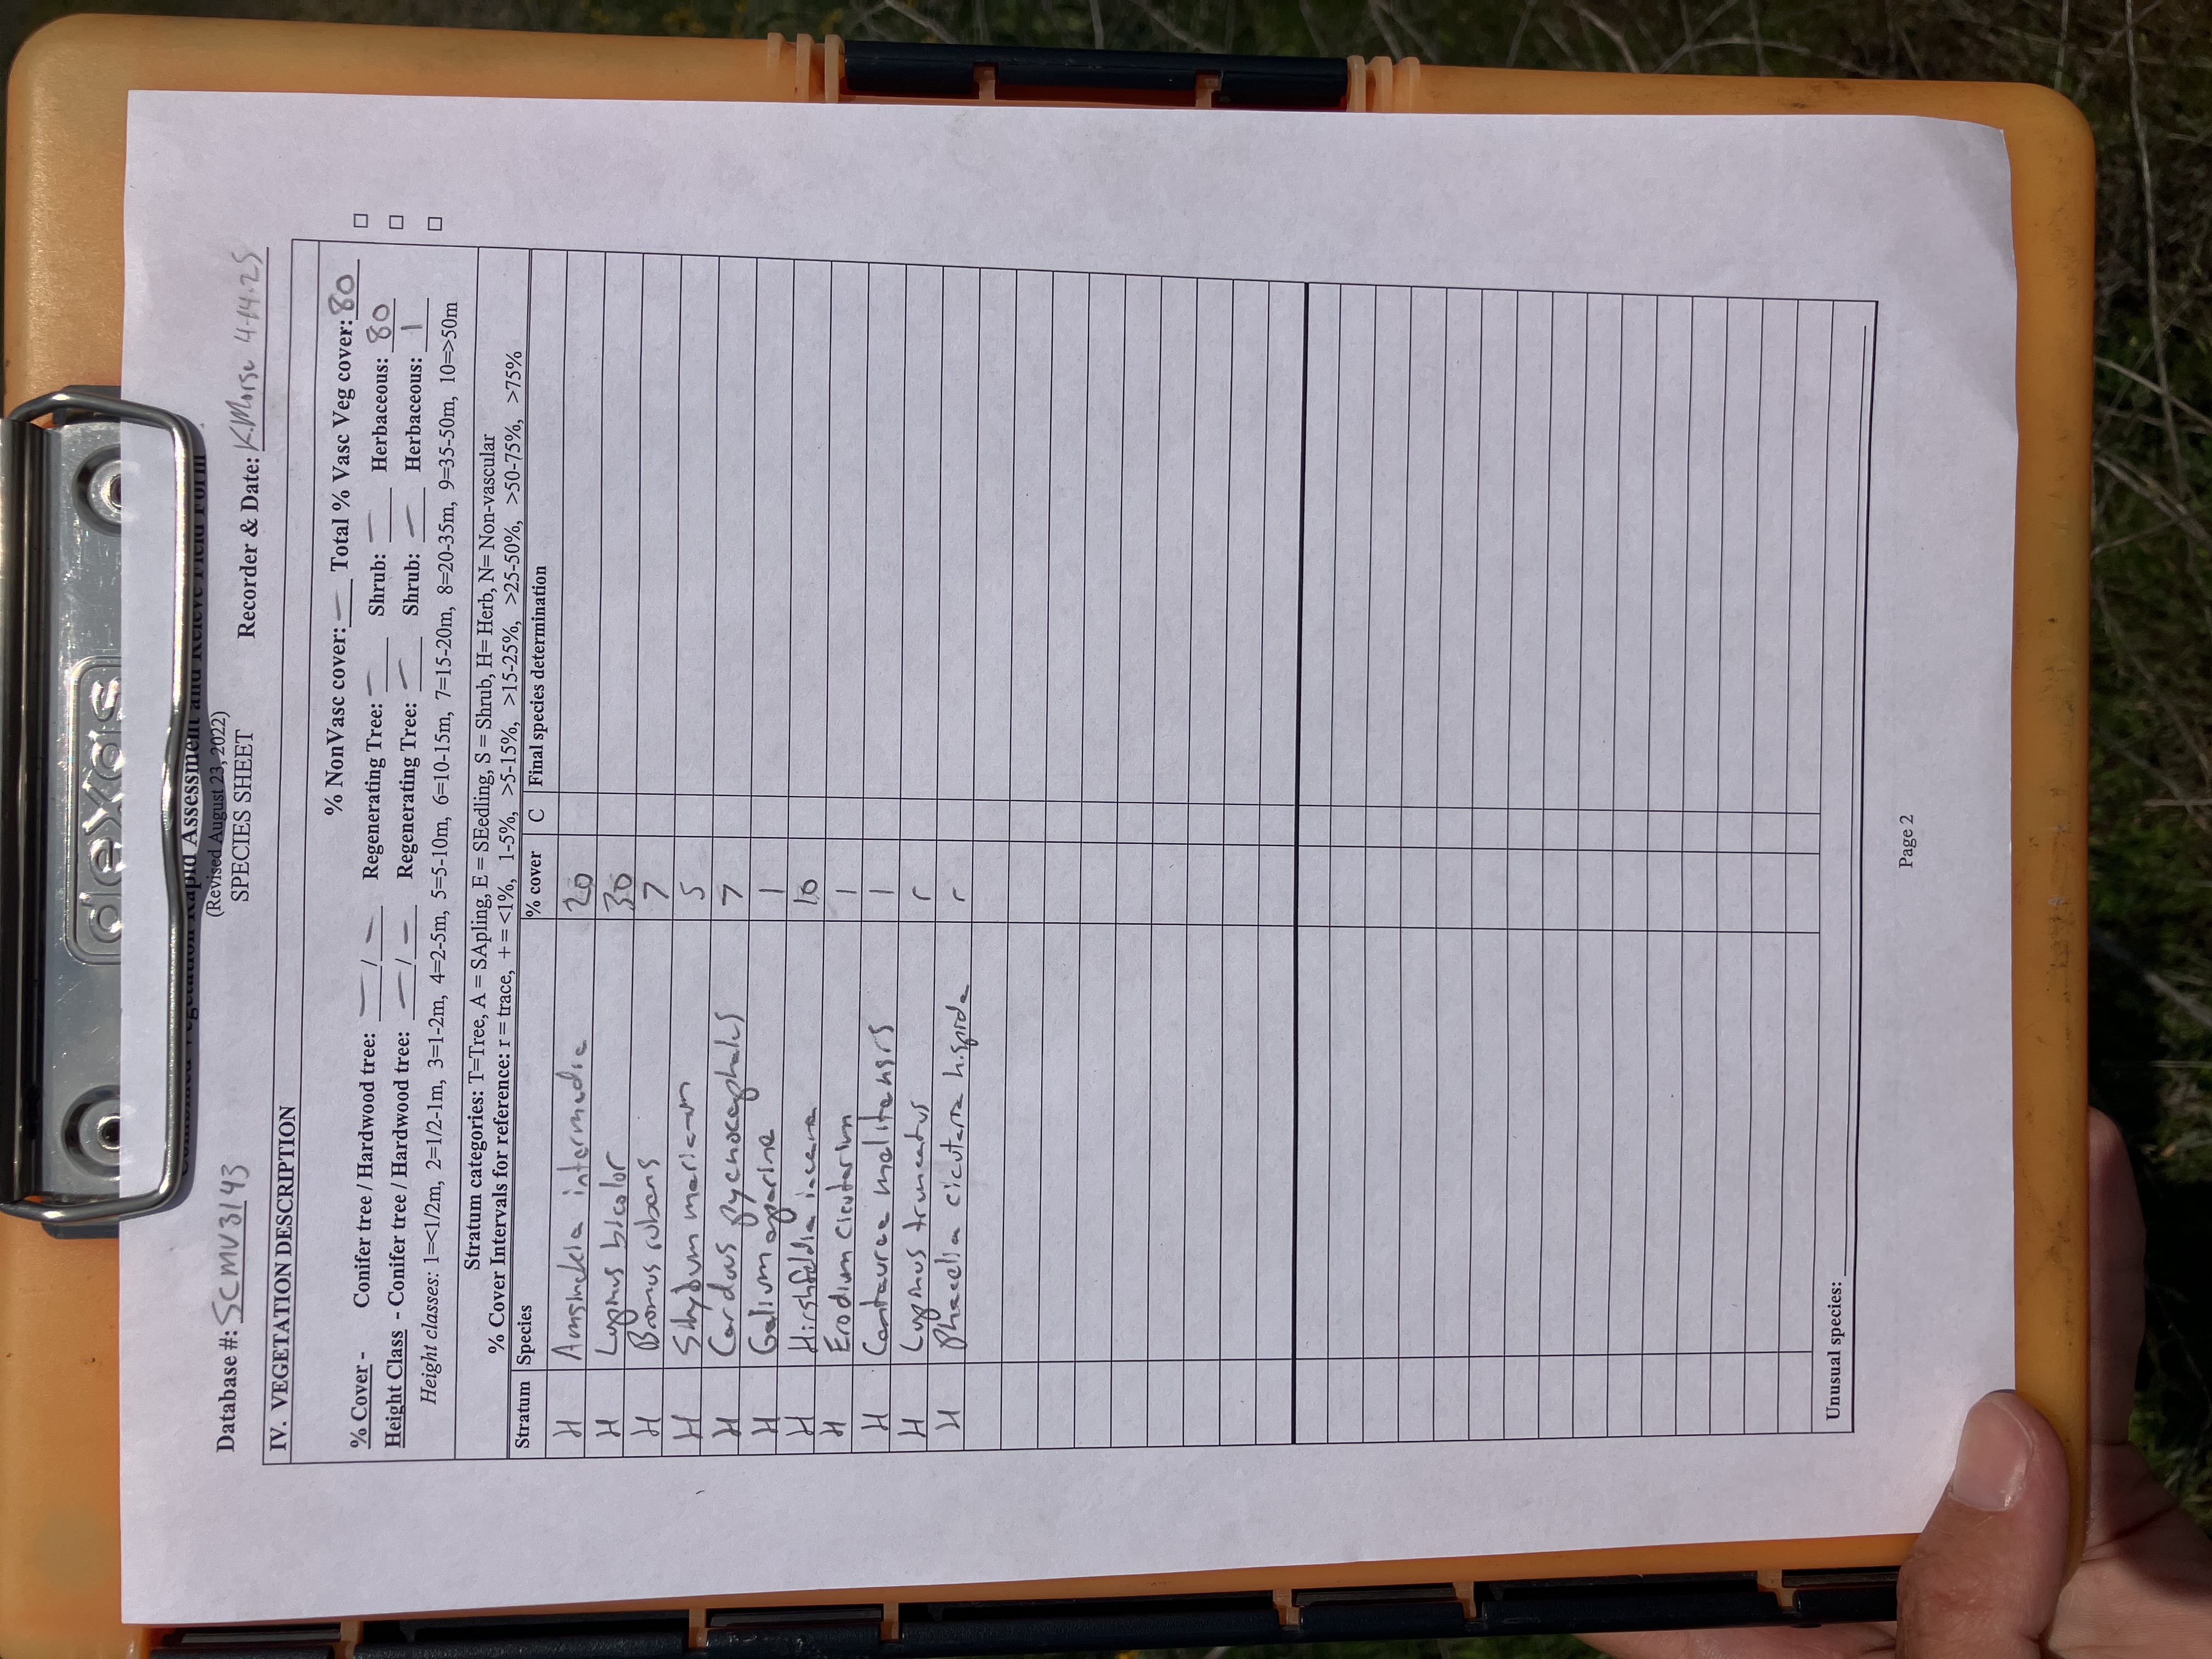 dexas
Combined Vegetation Rapid Assessment and Relevé Field Form
(Revised August 23, 2022)
SPECIES SHEET
Database #: SCMV3143 Recorder & Date: K.Morse 4-14-25
IV. VEGETATION DESCRIPTION
% NonVasc cover: — Total % Vasc Veg cover: 80
% Cover - Conifer tree / Hardwood tree: — / — Regenerating Tree: — Shrub: — Herbaceous: 80
Height Class - Conifer tree / Hardwood tree: — / — Regenerating Tree: — Shrub: — Herbaceous: 1
Height classes: 1=<1/2m, 2=1/2-1m, 3=1-2m, 4=2-5m, 5=5-10m, 6=10-15m, 7=15-20m, 8=20-35m, 9=35-50m, 10=>50m
Stratum categories: T=Tree, A = SApling, E = SEedling, S = Shrub, H= Herb, N= Non-vascular
% Cover Intervals for reference: r = trace, + = <1%, 1-5%, >5-15%, >15-25%, >25-50%, >50-75%, >75%
Stratum Species % cover C Final species determination
H Amsinckia intermedia 20
H Lupinus bicolor 30
H Bromus rubens 7
H Silybum marianum 5
H Carduus pycnocephalus 7
H Galium aparine 1
H Hirshfeldia incana 10
H Erodium cicutarium 1
H Centaurea melitensis 1
H Lupinus truncatus r
H Phacelia cicutaria hispida r
Unusual species:
Page 2